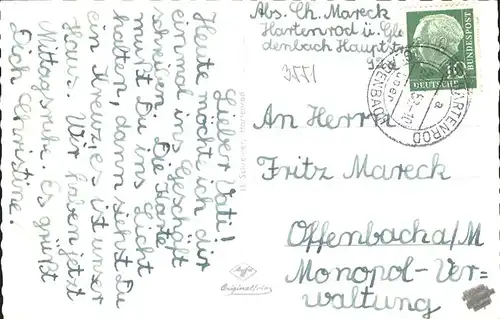 Lieber Vati!
Heute möcht ich dir
einmal ins Geschäft
schreiben. Die Karte
mußt Du ins Licht
halten, dann siehst Du
ein Kreuz, es ist unser
Haus. Wir haben jetzt
Mittagsruhe. Es grüßt
Dich Christine.
Abs. Ch. Mareck
Hartenrod ü. Gla
denbach Hauptstr
3571
DEUTSCHE BUNDESPOST
10
HARTENROD
a
An Herrn
Fritz Mareck
Offenbach a/M
Monopol-Ver-
waltung
Hartenrod
Agfa